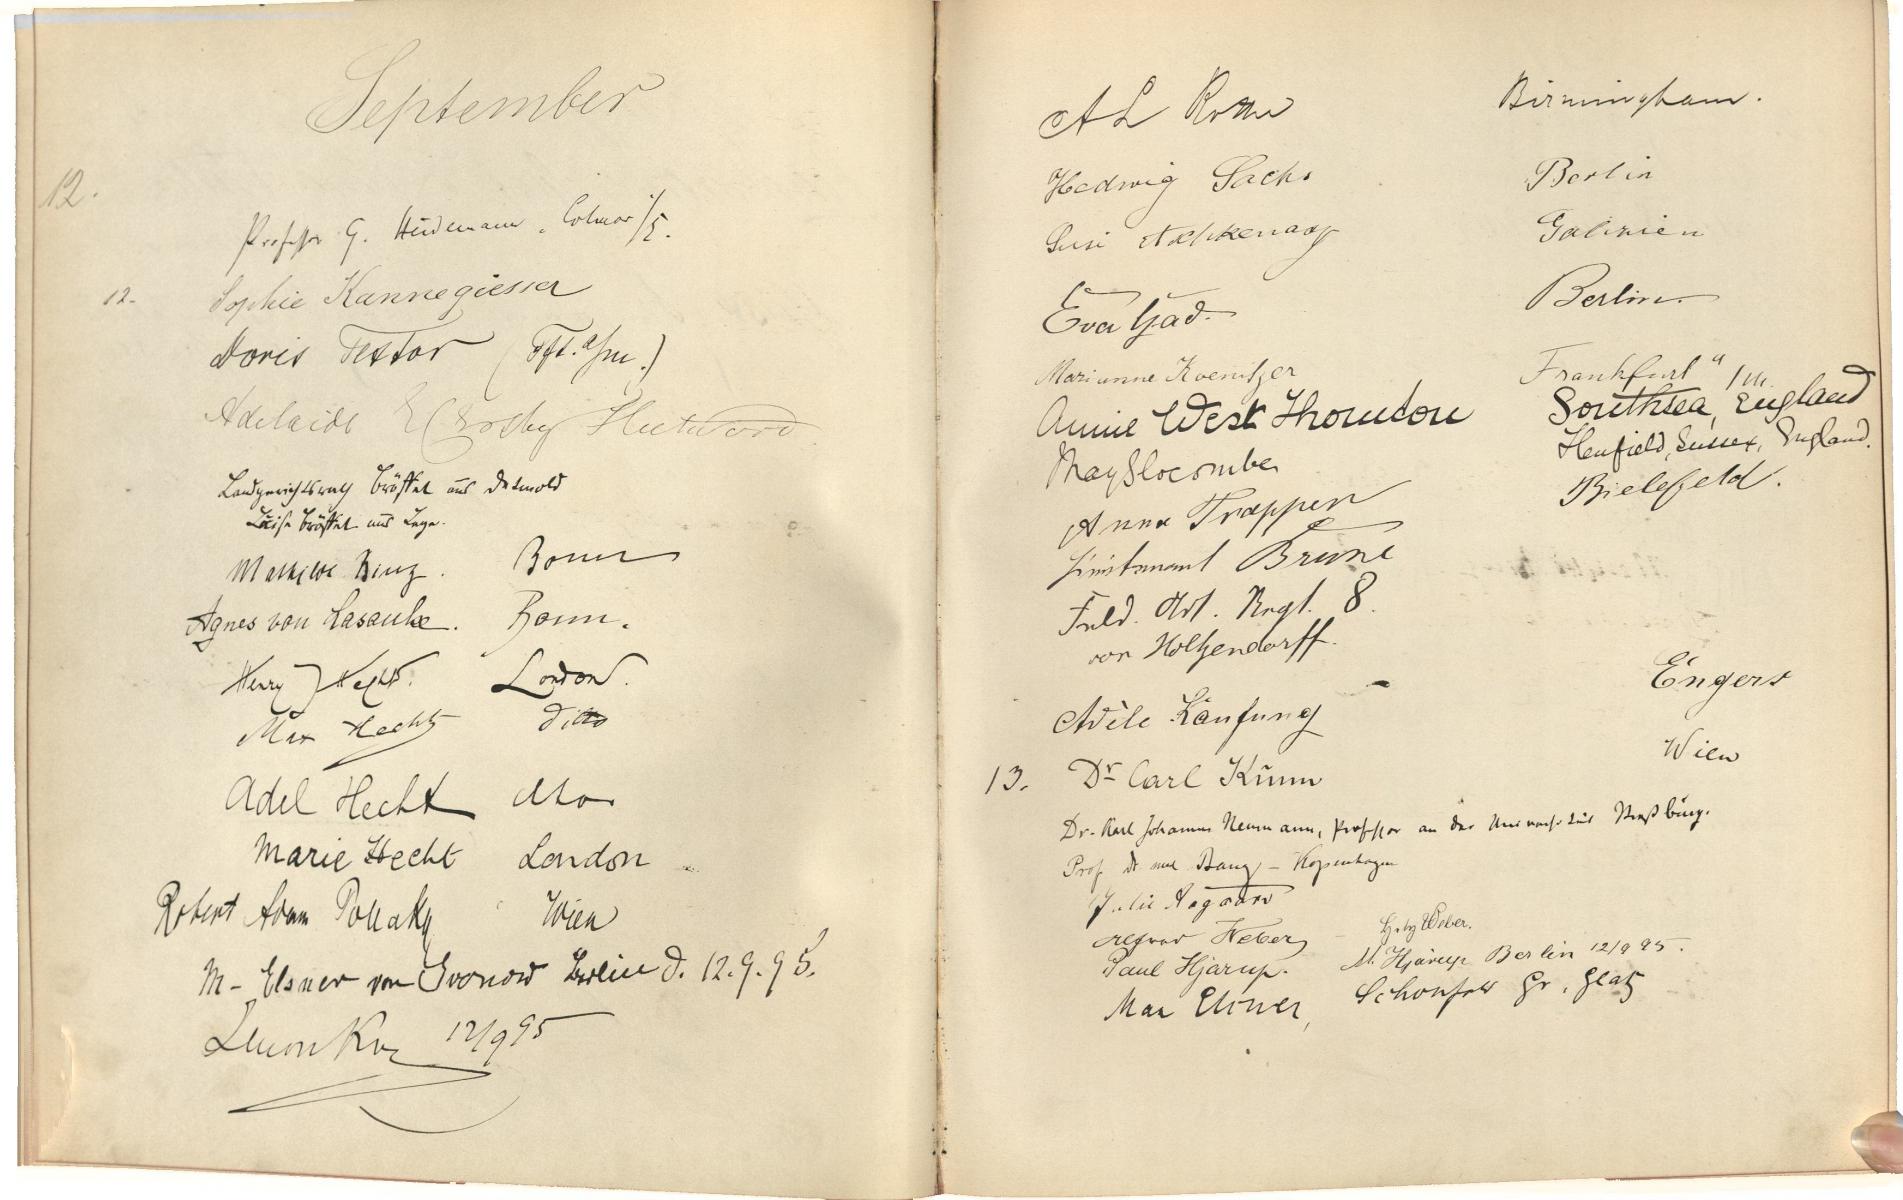 September
12.
Professor G. Heidemann, Colmar i/E.
12. Sophie Kannegiesser
Doris Textor (Fft. a/m.)
Adelaide
Landgerichtsrath Bröffel aus Detmold
Luise Bröffel aus Lage.
Mathilde Binz. Bonn
Agnes von Lasaulx. Bonn.
Henry J Hecht. London.
Max Hecht ditto
Adel Hecht ditto
Marie Hecht London
Robert Adam Pollak Wien
M. Elsner von Gronow Berlin d. 12.9.95.
12/9 95
A L Birmingham.
Hedwig Sachs Berlin
Susi Aschkenasy Galizien
Eva Gad. Berlin
Marianne Koenitzer Frankfurt a/m.
Annie West Thornton Southsea, England
May Slocombe Henfield, Sussex, England.
Anna Trappen Bielefeld.
Lieutenant Brune
Feld. Art. Regt. 8.
von Holtzendorff.
Adèle Kaufung Engers
13. Dr Carl Kumm Wien
Dr. Karl Johannes Neumann, Professor an der Universität Straßburg.
Prof Dr med Bang - Kopenhagen
Julie Aagaard
Weber Weber.
Paul Hjarup. M. Hjarup Berlin 12/9 95.
Max Elsner, Schönfeld Gr. Glatz